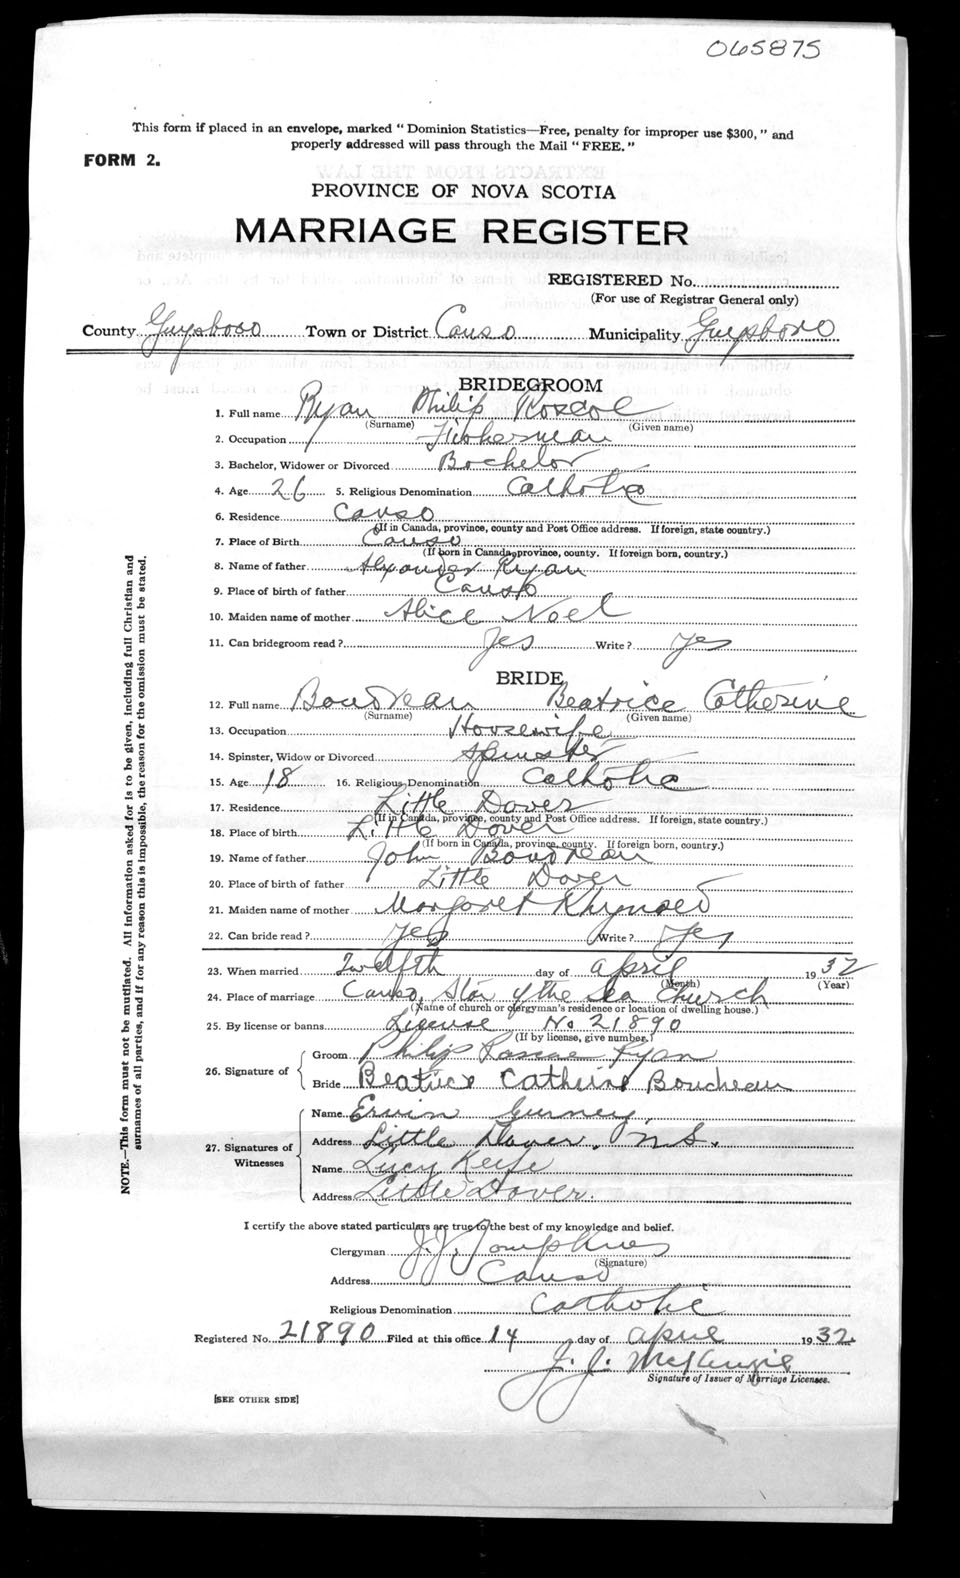 065875
This form if placed in an envelope, marked " Dominion Statistics—Free, penalty for improper use $300, " and
properly addressed will pass through the Mail " FREE. "
FORM 2.
PROVINCE OF NOVA SCOTIA
MARRIAGE REGISTER
REGISTERED No.
(For use of Registrar General only)
County Guysboro Town or District Canso Municipality Guysboro
BRIDEGROOM
1. Full name Ryan Philip Roscoe
(Surname) (Given name)
2. Occupation Fisherman
3. Bachelor, Widower or Divorced Bachelor
4. Age 26 5. Religious Denomination Catholic
6. Residence Canso
(If in Canada, province, county and Post Office address. If foreign, state country.)
7. Place of Birth Canso
(If born in Canada, province, county. If foreign born, country.)
8. Name of father Alexander Ryan
9. Place of birth of father Canso
10. Maiden name of mother Alice Noel
11. Can bridegroom read ? Yes Write ? Yes
BRIDE
12. Full name Boudreau Beatrice Catherine
(Surname) (Given name)
13. Occupation Housewife
14. Spinster, Widow or Divorced Spinster
15. Age 18 16. Religious Denomination Catholic
17. Residence Little Dover
(If in Canada, province, county and Post Office address. If foreign, state country.)
18. Place of birth Little Dover
(If born in Canada, province, county. If foreign born, country.)
19. Name of father John Boudreau
20. Place of birth of father Little Dover
21. Maiden name of mother Margaret
22. Can bride read ? Yes Write ? Yes
23. When married Twelfth day of April 1932
(Month) (Year)
24. Place of marriage Canso, Star of the Sea Church
(Name of church or clergyman's residence or location of dwelling house.)
25. By license or banns License No 21890
(If by license, give number.)
26. Signature of
Groom Philip Roscoe Ryan
Bride Beatrice Catherine Boudreau
27. Signatures of Witnesses
Name Erwin Gurney
Address Little Dover, N.S.
Name Lucy Keefe
Address Little Dover.
I certify the above stated particulars are true to the best of my knowledge and belief.
Clergyman J. J. Tompkins
(Signature)
Address Canso
Religious Denomination Catholic
Registered No. 21890 Filed at this office 14 day of April 1932
J. J. McKenzie
Signature of Issuer of Marriage Licenses.
[SEE OTHER SIDE]
NOTE.—This form must not be mutilated. All information asked for is to be given, including full Christian and
surnames of all parties, and if for any reason this is impossible, the reason for the omission must be stated.